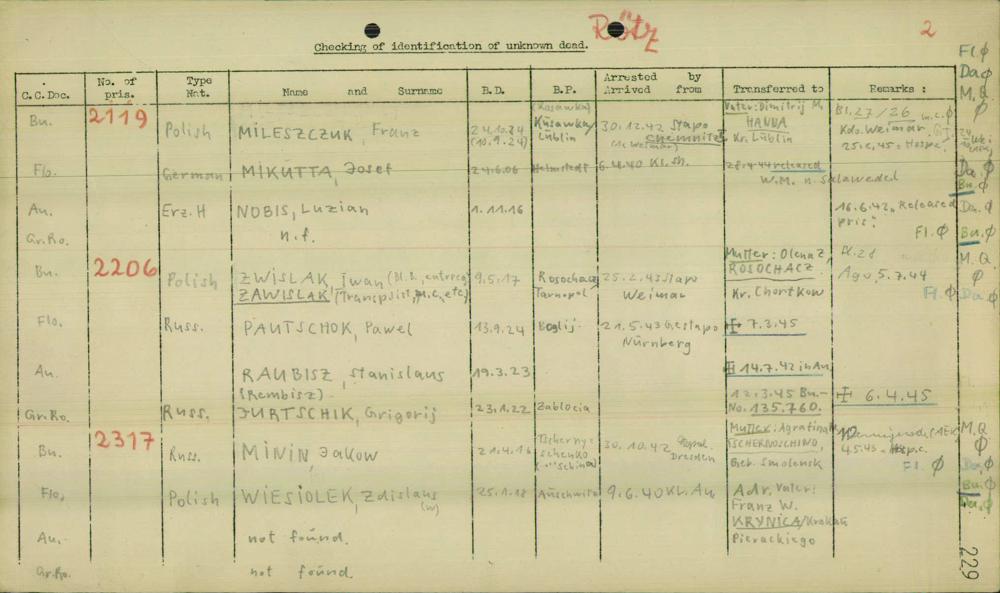 Rötz
2
Checking of identification of unknown dead.
C.C.Doc. No. of pris. Type Nat. Name and Surname B.D. B.P. Arrested by Arrived from Transferred to Remarks :
Fl.Ø
Da.Ø
M.Q.
Ø
Bu. 2119 Polish MILESZCZUK, Franz 24.10.24 (10.9.24) (Kusawka) Kusawka/ Lublin 30.12.42 Stapo Chemnitz Vater: Dimitrij M. HANNA Kr. Lublin Bl. 27/26 Kdo. Weimar,
Flo. German MIKUTTA, Josef 24.6.06 Helmstedt 6.4.40 Kl. Sh. 28.4.44 released W.M. n. Salzwedel
Da.Ø
Bu.Ø
Au. Erz.H NOBIS, Luzian 1.11.16 16.6.42 Released pris:
Da.Ø
Gr.Ro. n.f. Fl.Ø Bu.Ø
Bu. 2206 Polish ZWISLAK, Iwan (Bl.B., entreg. ZAWISLAK (Transpslist, m.c, etc) 9.5.17 Rosochacz Tarnopol 25.2.43 Stapo Weimar Mutter: Olena Z, ROSOCHACZ Kr. Chortkow IX.28 Ago, 5.7.44 Fl.Ø
M.Q.
Ø
Da.Ø
Flo. Russ. PAUTSCHOK, Pawel 13.9.24 Boglij. 21.5.43 Gestapo Nürnberg 7.3.45
Au. RAUBISZ, Stanislaus (Rembisz) 19.3.23 14.7.42 in Au 12.3.45 Bu.- No. 135.760. 6.4.45
Gr.Ro. Russ. JURTSCHIK, Grigorij 23.1.22 Zablocia
Bu. 2317 Russ. MININ, Jakow 21.4.16 30.10.42 Dresden Mutter: TSCHERNOSCHINO, Geb. Smolensk Fl. Ø
M.Q.
Ø
Da.Ø
Flo. Polish WIESIOLEK, Zdislaus (w) 25.1.18 Auschwitz 9.6.40 KL. Au Adr. Vater: Franz W. KRYNICA/Krakau Pierackiego
Bu.Ø
Da.Ø
Au. not found.
Gr.Ro. not found.
229